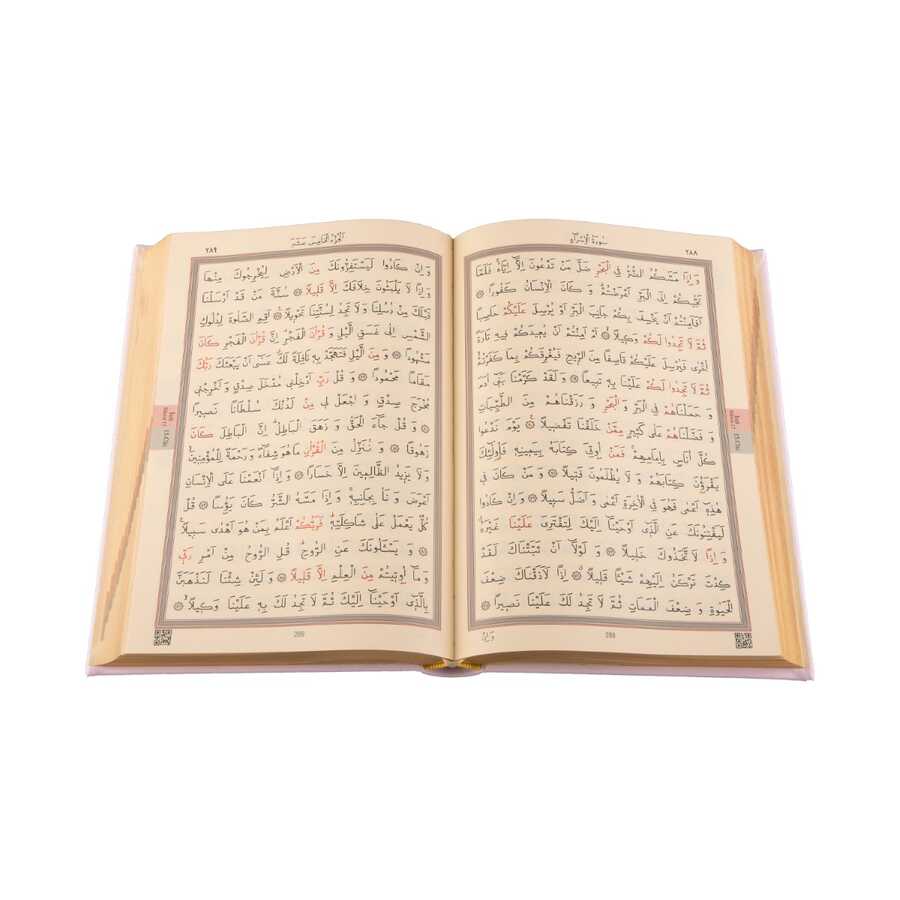 ٢٨٨
سُورَةُ الْاِسْرَاءِ
وَاِذَا مَسَّكُمُ الضُّرُّ فِي الْبَحْرِ ضَلَّ مَنْ تَدْعُونَ اِلَّٓا اِيَّاهُۚ فَلَمَّا
نَجّٰيكُمْ اِلَى الْبَرِّ اَعْرَضْتُمْۜ وَكَانَ الْاِنْسَانُ كَفُورًا
اَفَاَمِنْتُمْ اَنْ يَخْسِفَ بِكُمْ جَانِبَ الْبَرِّ اَوْ يُرْسِلَ عَلَيْكُمْ حَاصِبًا
ثُمَّ لَا تَجِدُوا لَكُمْ وَكِيلًا اَمْ اَمِنْتُمْ اَنْ يُعِيدَكُمْ فِيهِ تَارَةً
اُخْرٰى فَيُرْسِلَ عَلَيْكُمْ قَاصِفًا مِنَ الرِّيحِ فَيُغْرِقَكُمْ بِمَا كَفَرْتُمْ
ثُمَّ لَا تَجِدُوا لَكُمْ عَلَيْنَا بِهِ تَبِيعًا وَلَقَدْ كَرَّمْنَا بَنِٓي اٰدَمَ
وَحَمَلْنَاهُمْ فِي الْبَرِّ وَالْبَحْرِ وَرَزَقْنَاهُمْ مِنَ الطَّيِّبَاتِ
وَفَضَّلْنَاهُمْ عَلٰى كَثِيرٍ مِمَّنْ خَلَقْنَا تَفْضِيلًا يَوْمَ نَدْعُوا
كُلَّ اُنَاسٍ بِاِمَامِهِمْۚ فَمَنْ اُوتِيَ كِتَابَهُ بِيَمِينِهِ فَاُو۬لٰٓئِكَ
يَقْرَؤُ۫نَ كِتَابَهُمْ وَلَا يُظْلَمُونَ فَتِيلًا وَمَنْ كَانَ فِي
هٰذِهِٓ اَعْمٰى فَهُوَ فِي الْاٰخِرَةِ اَعْمٰى وَاَضَلُّ سَبِيلًا وَاِنْ كَادُوا
لَيَفْتِنُونَكَ عَنِ الَّذِٓي اَوْحَيْنَٓا اِلَيْكَ لِتَفْتَرِيَ عَلَيْنَا غَيْرَهُۗ
وَاِذًا لَاتَّخَذُوكَ خَلِيلًا وَلَوْلَٓا اَنْ ثَبَّتْنَاكَ لَقَدْ
كِدْتَ تَرْكَنُ اِلَيْهِمْ شَيْـًٔا قَلِيلًا اِذًا لَاَذَقْنَاكَ ضِعْفَ
الْحَيٰوةِ وَضِعْفَ الْمَمَاتِ ثُمَّ لَا تَجِدُ لَكَ عَلَيْنَا نَصِيرًا
288
وَاِنْ
٢٨٩
اَلْجُزْءُ الْخَامِسَ عَشَرَ
وَاِنْ كَادُوا لَيَسْتَفِزُّونَكَ مِنَ الْاَرْضِ لِيُخْرِجُوكَ مِنْهَا
وَاِذًا لَا يَلْبَثُونَ خِلَافَكَ اِلَّا قَلِيلًا سُنَّةَ مَنْ قَدْ اَرْسَلْنَا
قَبْلَكَ مِنْ رُسُلِنَا وَلَا تَجِدُ لِسُنَّتِنَا تَحْوِيلًا اَقِمِ الصَّلٰوةَ لِدُلُوكِ
الشَّمْسِ اِلٰى غَسَقِ الَّيْلِ وَقُرْاٰنَ الْفَجْرِۜ اِنَّ قُرْاٰنَ الْفَجْرِ كَانَ
مَشْهُودًا وَمِنَ الَّيْلِ فَتَهَجَّدْ بِهِ نَافِلَةً لَكَۗ عَسٰٓى اَنْ يَبْعَثَكَ رَبُّكَ
مَقَامًا مَحْمُودًا وَقُلْ رَبِّ اَدْخِلْنِي مُدْخَلَ صِدْقٍ وَاَخْرِجْنِي
مُخْرَجَ صِدْقٍ وَاجْعَلْ لِي مِنْ لَدُنْكَ سُلْطَانًا نَصِيرًا
وَقُلْ جَٓاءَ الْحَقُّ وَزَهَقَ الْبَاطِلُۜ اِنَّ الْبَاطِلَ كَانَ
زَهُوقًا وَنُنَزِّلُ مِنَ الْقُرْاٰنِ مَا هُوَ شِفَٓاءٌ وَرَحْمَةٌ لِلْمُؤْمِنِينَۙ
وَلَا يَزِيدُ الظَّالِمِينَ اِلَّا خَسَارًا وَاِذَٓا اَنْعَمْنَا عَلَى الْاِنْسَانِ
اَعْرَضَ وَنَاٰ بِجَانِبِهِۚ وَاِذَا مَسَّهُ الشَّرُّ كَانَ يَؤُ۫سًا قُلْ
كُلٌّ يَعْمَلُ عَلٰى شَاكِلَتِهِۜ فَرَبُّكُمْ اَعْلَمُ بِمَنْ هُوَ اَهْدٰى سَبِيلًا۟
وَيَسْـَٔلُونَكَ عَنِ الرُّوحِۜ قُلِ الرُّوحُ مِنْ اَمْرِ رَبِّي
وَمَٓا اُو۫تِيتُمْ مِنَ الْعِلْمِ اِلَّا قَلِيلًا وَلَئِنْ شِئْنَا لَنَذْهَبَنَّ
بِالَّذِٓي اَوْحَيْنَٓا اِلَيْكَ ثُمَّ لَا تَجِدُ لَكَ بِهِ عَلَيْنَا وَكِيلًاۙ
289